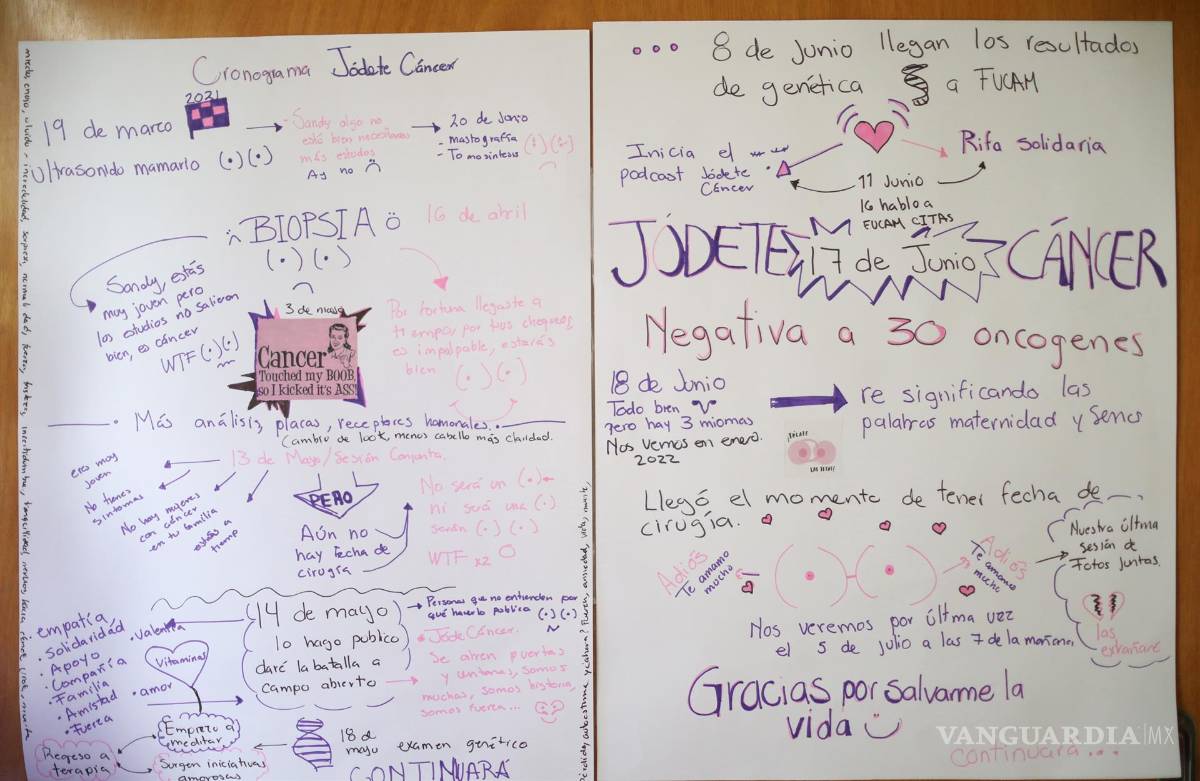 Cronograma Jódete Cáncer
2021
19 de marzo
ultrasonido mamario
Sandy algo no
está bien necesitamos
más estudios
Ay no
20 de Junio
- mastografía
- Tomosíntesis
BIOPSIA
16 de abril
Sandy estás
muy joven pero
los estudios no salieron
bien, es cáncer
WTF
3 de mayo
Cancer
Touched my BOOB,
so I kicked it's ASS!
Por fortuna llegaste a
tiempo, por tus chequeos,
es impalpable, estarás
bien
Más análisis, placas, receptores hormonales.
(cambio de look, menos cabello más claridad.
13 de Mayo/Sesión Conjunta.
eres muy
joven
No tienes
síntomas
No hay mujeres
con cáncer
en tu familia
estás a
tiempo
PERO
Aún no
hay fecha de
cirugía
No será un
ni será una
serán
WTF x2
14 de mayo
lo hago publico
daré la batalla a
campo abierto
Personas que no entienden por
qué hacerlo publico
JódeteCáncer.
Se abren puertas
y ventanas, somos
muchas, somos historia,
somos fuerza...
empatía
• Solidaridad
• Apoyo
• Compañía
• Familia
• Amistad
• Fuerza
• Valentía
Vitaminas
• amor
Empiezo a
meditar
Regreso a
terapia
Surgen iniciativas
amorosas
18 de
mayo examen genético
CONTINUARÁ
... 8 de Junio llegan los resultados
de genética a FUCAM
Inicia el
podcast Jódete
Cáncer
Rifa solidaria
11 Junio
16 hablo a
FUCAM CITAS
JÓDETE 17 de Junio CÁNCER
Negativa a 30 oncogenes
18 de Junio
Todo bien
pero hay 3 miomas
Nos vemos en enero.
2022
re significando las
palabras maternidad y senos
Llegó el momento de tener fecha de
cirugía.
Adiós
Te amamo
mucho
Adiós
Te amamos
mucho
Nuestra última
sesión de
fotos juntas.
las
extrañaré
Nos veremos por última vez
el 5 de julio a las 7 de la mañana
Gracias por salvarme la
vida
continuara...
VANGUARDIA|MX